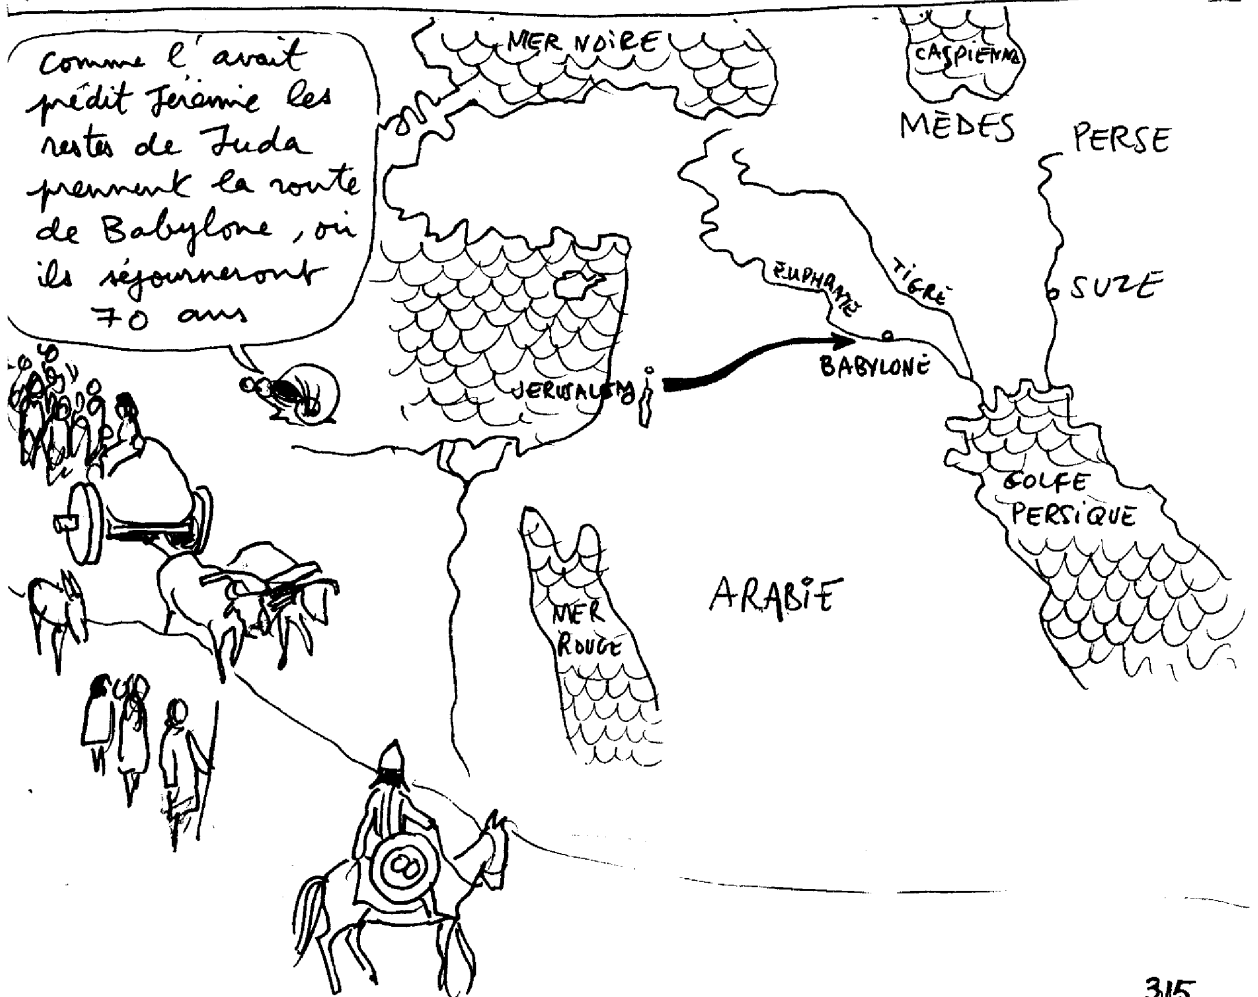 comme l'avait
prédit Jérémie les
restes de Juda
prennent la route
de Babylone, où
ils séjourneront
70 ans
MER NOIRE
CASPIENNE
MÈDES
PERSE
SUZE
TIGRE
EUPHRATE
BABYLONE
JERUSALEM
GOLFE
PERSIQUE
MER
ROUGE
ARABIE
315